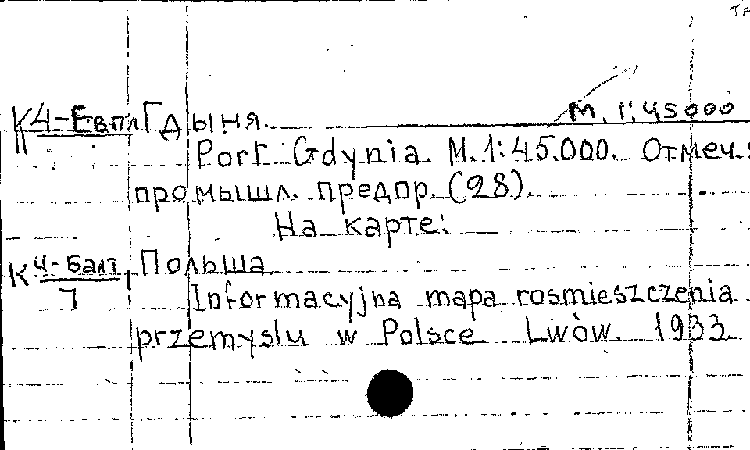 К 4-Евпл Гдыня. М. 1:45000
Port Gdynia. М. 1:45.000. Отмеч.:
промышл. предпр. (28).
На карте:
К 4-Балт Польша
7 Informacyjna mapa rosmieszczenia
przemyslu w Polsce Lwów. 1933